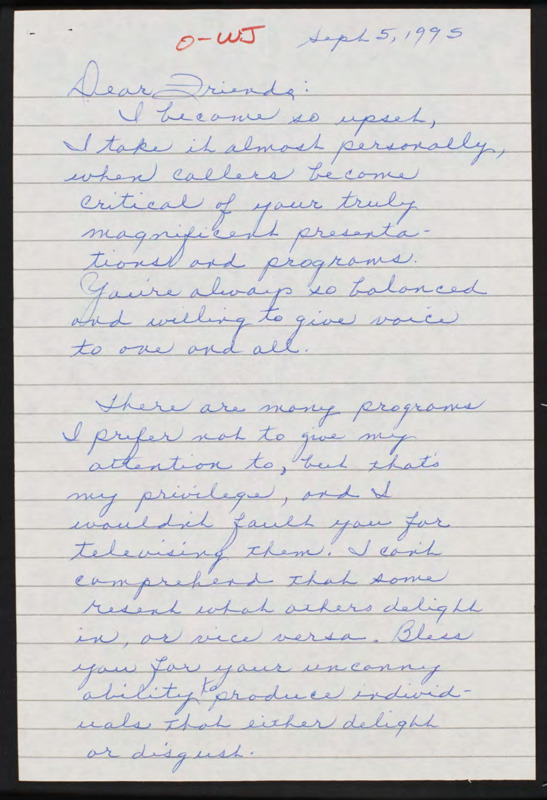 O-WJ Sept 5, 1995
Dear Friends:
I become so upset,
I take it almost personally,
when callers become
critical of your truly
magnificent presenta-
tions and programs.
You're always so balanced
and willing to give voice
to one and all.
There are many programs
I prefer not to give my
attention to, but that's
my privilege, and I
wouldn't fault you for
televising them. I can't
comprehend that some
resent what others delight
in, or vice versa. Bless
you for your uncanny
ability to produce individ-
uals that either delight
or disgust.